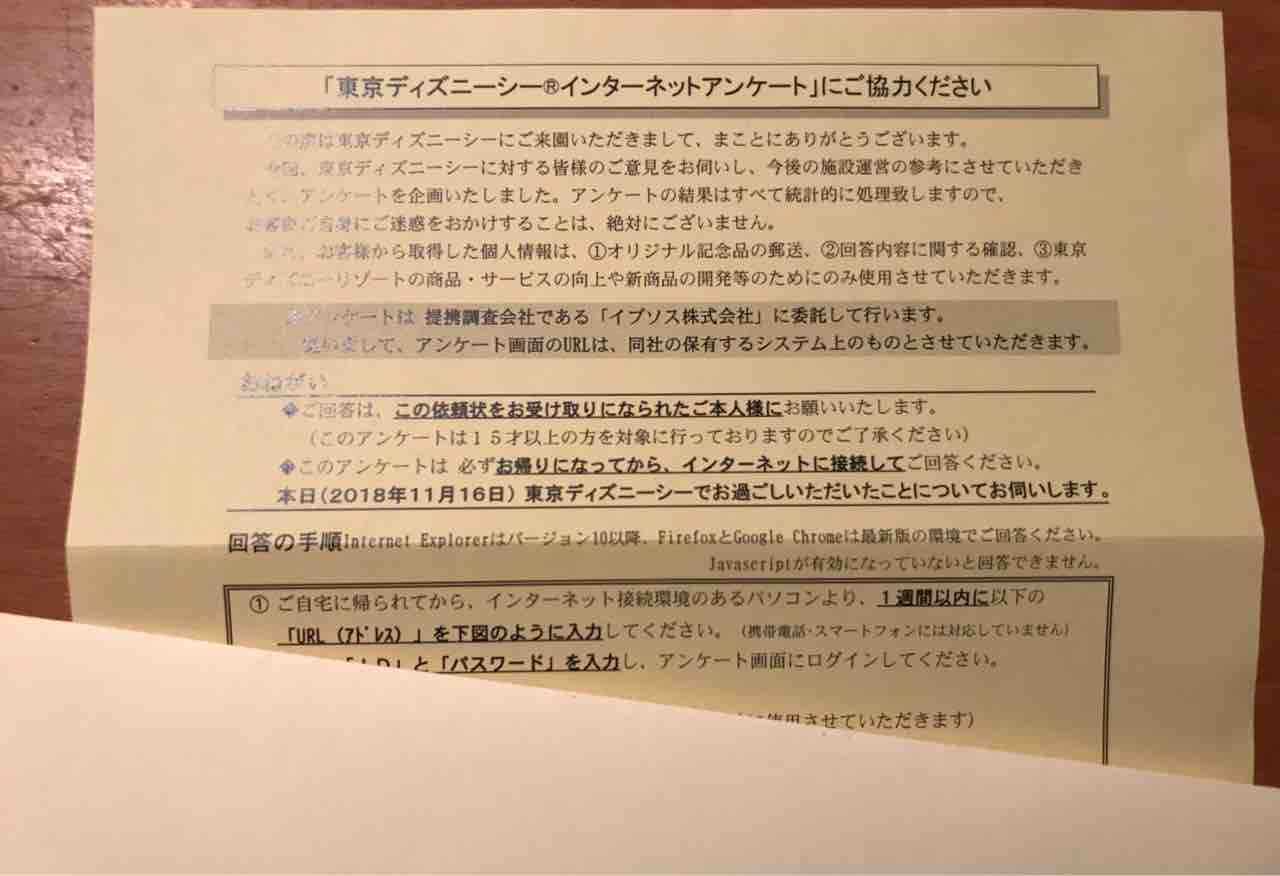 「東京ディズニーシー®インターネットアンケート」にご協力ください
の度は東京ディズニーシーにご来園いただきまして、まことにありがとうございます。
今回、東京ディズニーシーに対する皆様のご意見をお伺いし、今後の施設運営の参考にさせていただき
たく、アンケートを企画いたしました。アンケートの結果はすべて統計的に処理致しますので、
お客様ご自身にご迷惑をおかけすることは、絶対にございません。
お客様から取得した個人情報は、①オリジナル記念品の郵送、②回答内容に関する確認、③東京
ディズニーリゾートの商品・サービスの向上や新商品の開発等のためにのみ使用させていただきます。
アンケートは 提携調査会社である「イプソス株式会社」に委託して行います。
して、アンケート画面のURLは、同社の保有するシステム上のものとさせていただきます。
おねがい
◆ご回答は、この依頼状をお受け取りになられたご本人様にお願いいたします。
（このアンケートは１５才以上の方を対象に行っておりますのでご了承ください）
◆このアンケートは 必ずお帰りになってから、インターネットに接続してご回答ください。
本日（2018年11月16日）東京ディズニーシーでお過ごしいただいたことについてお伺いします。
回答の手順Internet Explorerはバージョン10以降、FirefoxとGoogle Chromeは最新版の環境でご回答ください。
Javascriptが有効になっていないと回答できません。
① ご自宅に帰られてから、インターネット接続環境のあるパソコンより、１週間以内に以下の
「URL（ｱﾄﾞﾚｽ）」を下図のように入力してください。（携帯電話・スマートフォンには対応していません）
「ＩＤ」と「パスワード」を入力し、アンケート画面にログインしてください。
使用させていただきます）